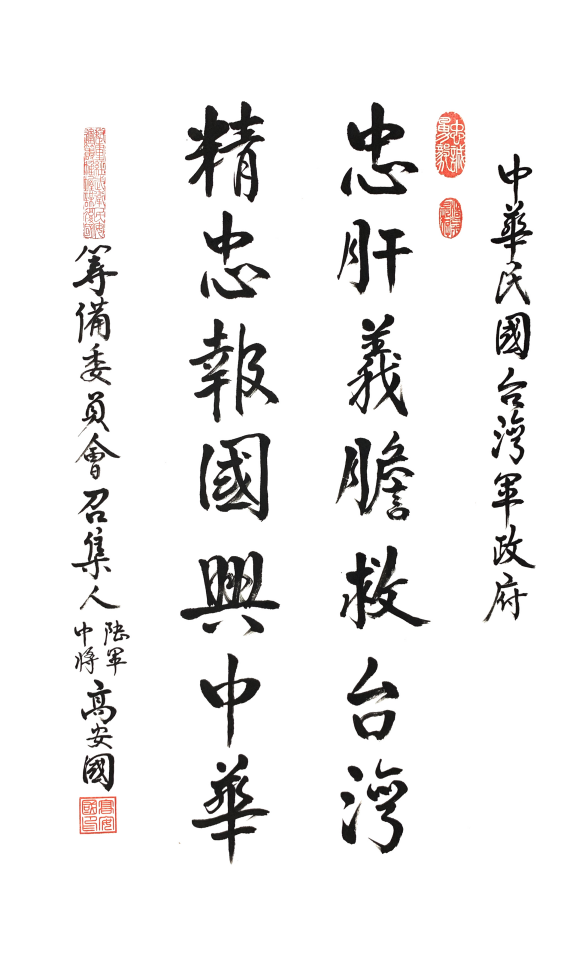 中華民國台灣軍政府
忠誠
勇毅
忠肝義膽救台灣
精忠報國興中華
籌備委員會召集人
陸軍
中將
高安國
高安
國印